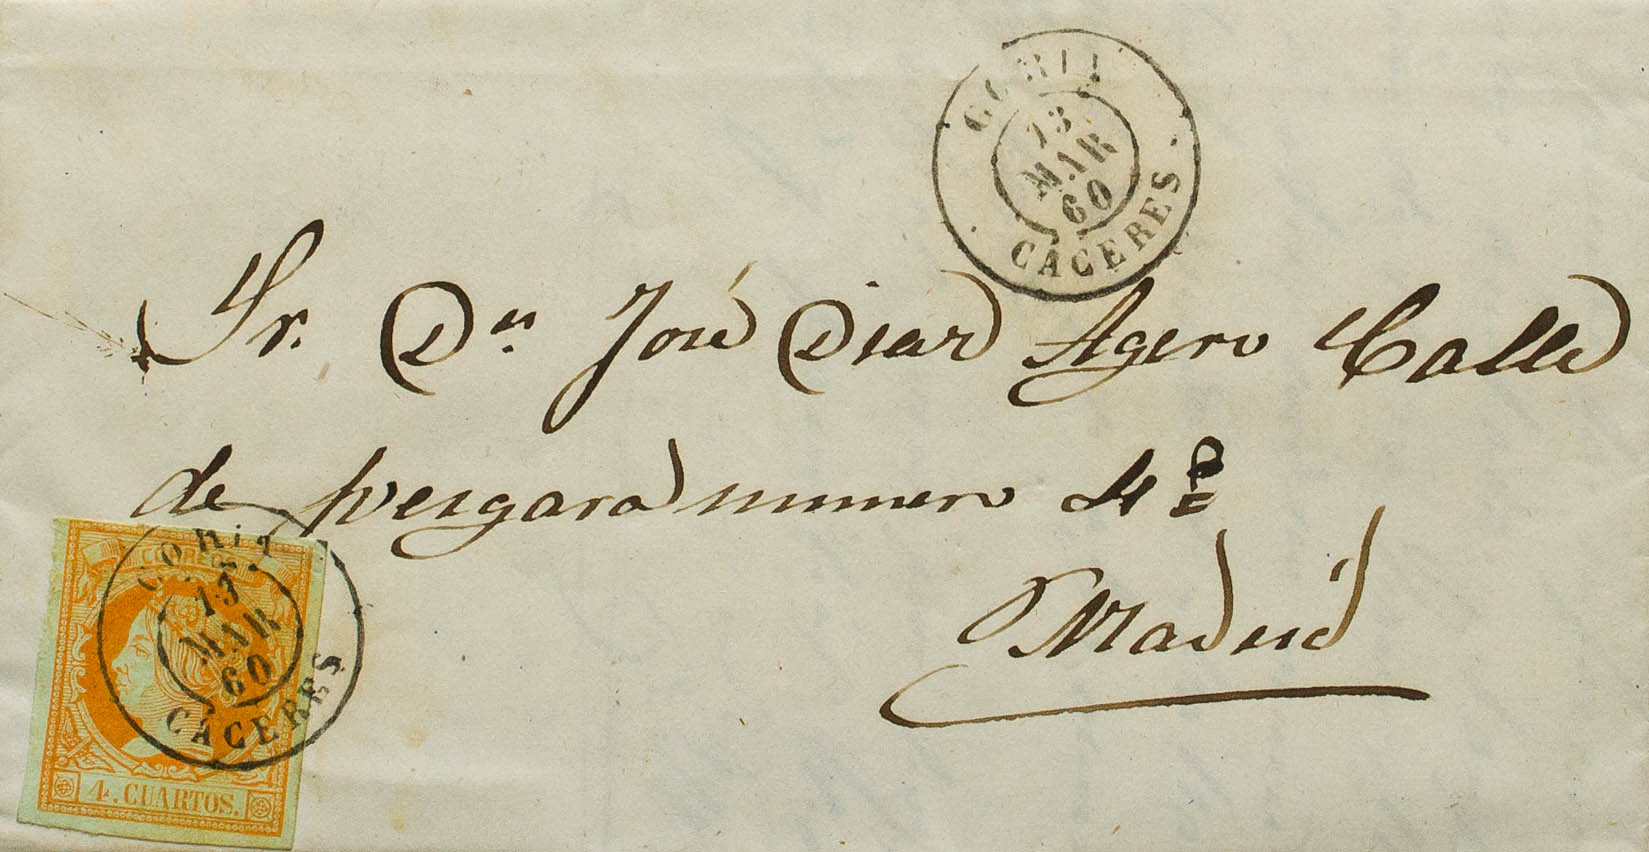 CORIA
13
MAR
60
CÁCERES
Sr. Dn José Diaz Agero Calle
de vergara numero 4
Madrid
CORREOS
CORIA
13
MAR
60
CÁCERES
4. CUARTOS.